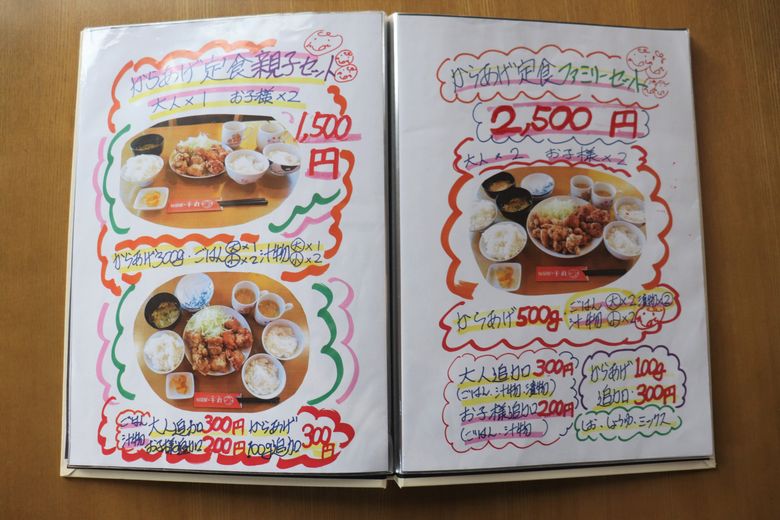 からあげ定食親子セット
大人×1 お子様×2
1,500
円
からあげ300g・ごはん大×1 汁物大×1
小×2 小×2
ごはん 大人追加300円 からあげ
汁物 お子様追加200円 100g追加 300円
からあげ定食ファミリーセット
2,500円
大人×2 お子様×2
からあげ500g
ごはん大×2 漬物×2
汁物小×2
大人追加300円
(ごはん・汁物・漬物)
お子様追加200円
(ごはん・汁物)
からあげ100g
追加:300円
しお・しょうゆ・ミックス